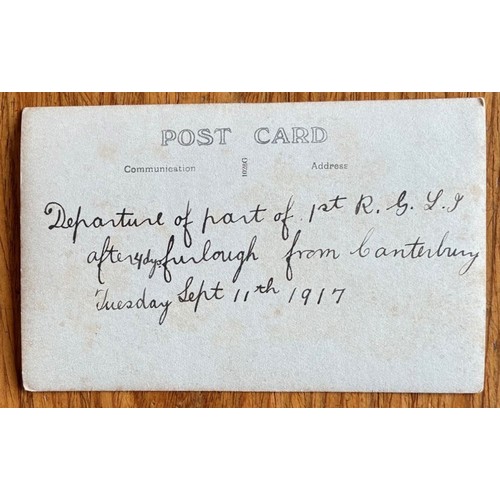 POST CARD
Communication
Address
Departure of part of 1st R. G. L. I
after 4 dys furlough from Canterbury
Tuesday Sept 11th 1917